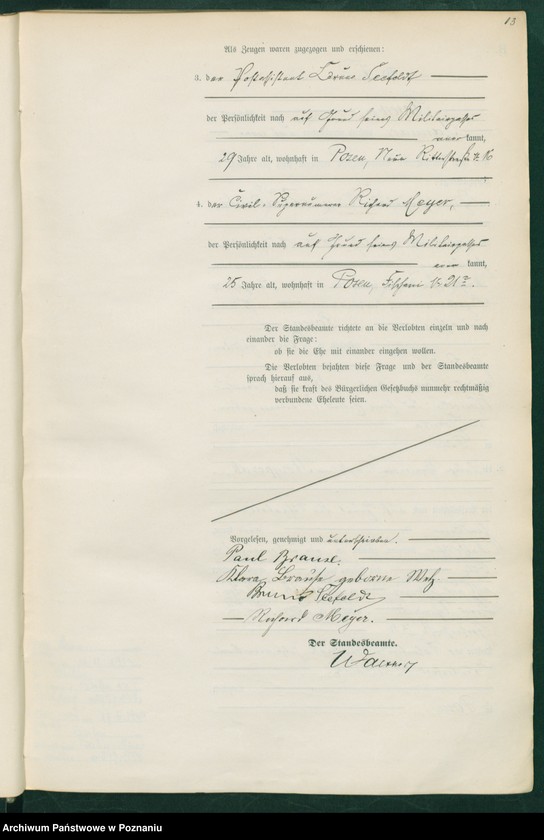 13
Als Zeugen waren zugezogen und erschienen:
3. der Postassistent Bruno Seefoldt
der Persönlichkeit nach auf Grund seines Militairpasses
kannt,
29 Jahre alt, wohnhaft in Posen, Neue Ritterstraße
4. der Civil-Supernumerar Richard Meyer,
der Persönlichkeit nach auf Grund seines Militairpasses
kannt,
25 Jahre alt, wohnhaft in Posen, Fischerei
Der Standesbeamte richtete an die Verlobten einzeln und nach
einander die Frage:
ob sie die Ehe mit einander eingehen wollen.
Die Verlobten bejahten diese Frage und der Standesbeamte
sprach hierauf aus,
daß sie kraft des Bürgerlichen Gesetzbuchs nunmehr rechtmäßig
verbundene Eheleute seien.
Vorgelesen, genehmigt und unterschrieben.
Paul Brause.
Klara Brause geborene
Bruno Seefoldt
Richard Meyer.
Der Standesbeamte.
Archiwum Państwowe w Poznaniu